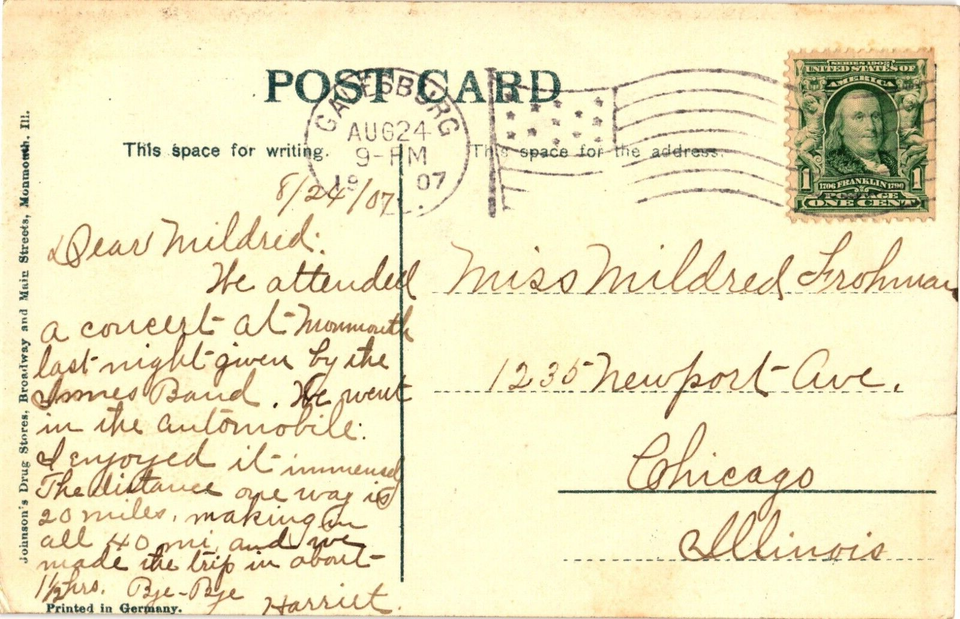 POST CARD
GALESBURG
AUG 24
9-PM
19 07
SERIES 1902
UNITED STATES OF
AMERICA
1 1
1706 FRANKLIN 1790
POSTAGE
ONE CENT
This space for writing.
This space for the address.
8/24/07.
Dear Mildred:
We attended
a concert at Monmouth
last night given by the
Innes Band. We went
in the automobile.
I enjoyed it immensely
The distance one way is
20 miles, making in
all 40 mi, and we
made the trip in about
1 1/2 hrs. Bye-Bye
Harriet.
Miss Mildred Frohman
1235 Newport Ave.
Chicago
Illinois
Johnson's Drug Stores, Broadway and Main Streets, Monmouth, Ill.
Printed in Germany.